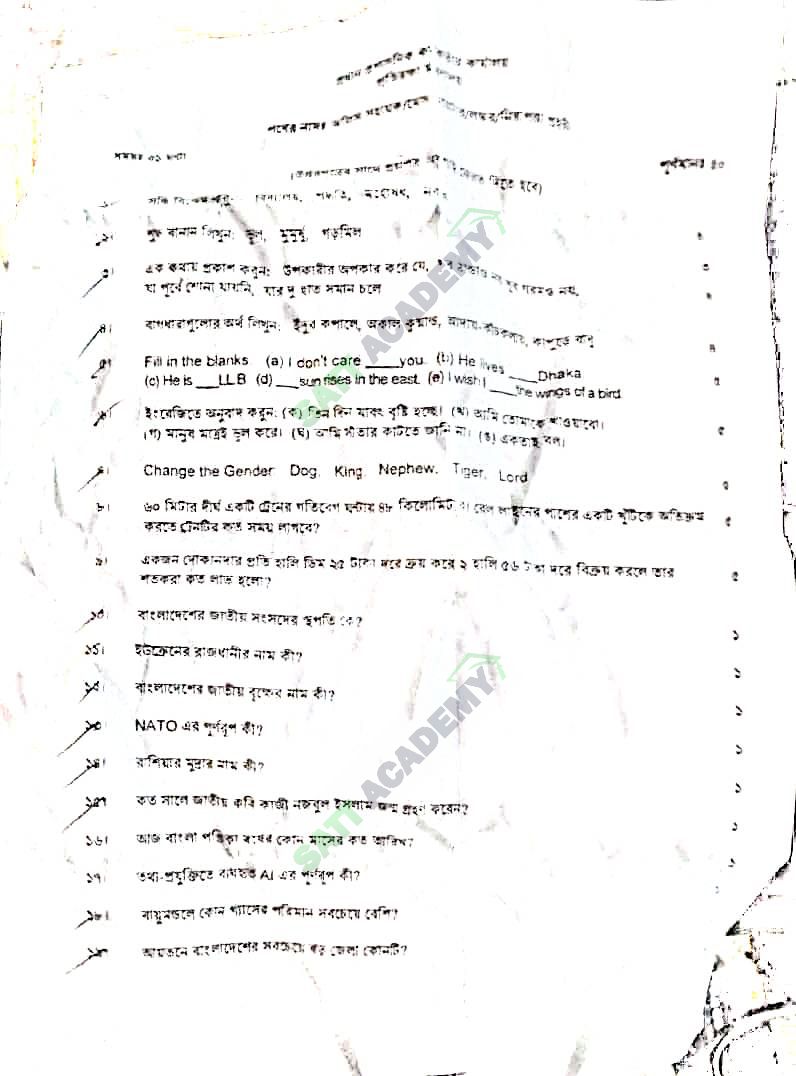 প্রধান প্রশাসনিক কর্মকর্তার কার্যালয়
পদের নাম: অফিস সহায়ক/মেস
সময়ঃ ০১ ঘণ্টা
পূর্ণমানঃ ৫০
সন্ধি বিচ্ছেদ করুন: বিদ্যালয়, পদ্ধতি, মহৌষধ,
২। শুদ্ধ বানান লিখুন: ভুণ, মুমুর্ষু, গড়মিল
৩। এক কথায় প্রকাশ করুন: উপকারীর অপকার করে যে, খুব ঠান্ডাও নয় খুব গরমও নয়,
যা পূর্বে শোনা যায়নি, যার দু হাত সমান চলে
৪। বাগধারাগুলোর অর্থ লিখুন: ইঁদুর কপালে, অকাল কুষ্মান্ড, আদায়-কাঁচকলায়, কাপুড়ে বাবু
৫। Fill in the blanks. (a) I don't care ____you. (b) He lives ____Dhaka
(c) He is ___LLB (d) ___sun rises in the east. (e) I wish I ____the wings of a bird.
৬। ইংরেজিতে অনুবাদ করুন: (ক) তিন দিন যাবৎ বৃষ্টি হচ্ছে। (খ) আমি তোমাকে খাওয়াবো।
(গ) মানুষ মাত্রই ভুল করে। (ঘ) আমি সাঁতার কাটতে জানি না। (ঙ) একতাই বল।
৭। Change the Gender: Dog, King, Nephew, Tiger, Lord
৮। ৬০ মিটার দীর্ঘ একটি ট্রেনের গতিবেগ ঘন্টায় ৪৮ কিলোমিটার। রেল লাইনের পাশের একটি খুঁটিকে অতিক্রম
করতে ট্রেনটির কত সময় লাগবে?
৯। একজন দোকানদার প্রতি হালি ডিম ২৫ টাকা দরে ক্রয় করে ২ হালি ৫৬ টাকা দরে বিক্রয় করলে তার
শতকরা কত লাভ হলো?
১০। বাংলাদেশের জাতীয় সংসদের স্থপতি কে?
১১। ইউক্রেনের রাজধানীর নাম কী?
১২। বাংলাদেশের জাতীয় বৃক্ষের নাম কী?
১৩। NATO এর পূর্ণরূপ কী?
১৪। রাশিয়ার মুদ্রার নাম কী?
১৫। কত সালে জাতীয় কবি কাজী নজরুল ইসলাম জন্ম গ্রহণ করেন?
১৬। আজ বাংলা পঞ্জিকা বর্ষের কোন মাসের কত তারিখ?
১৭। তথ্য-প্রযুক্তিতে ব্যবহৃত AI এর পূর্ণরূপ কী?
১৮। বায়ুমন্ডলে কোন গ্যাসের পরিমান সবচেয়ে বেশি?
১৯। আয়তনে বাংলাদেশের সবচেয়ে বড় জেলা কোনটি?
SATT ACADEMY
SATT ACADEMY